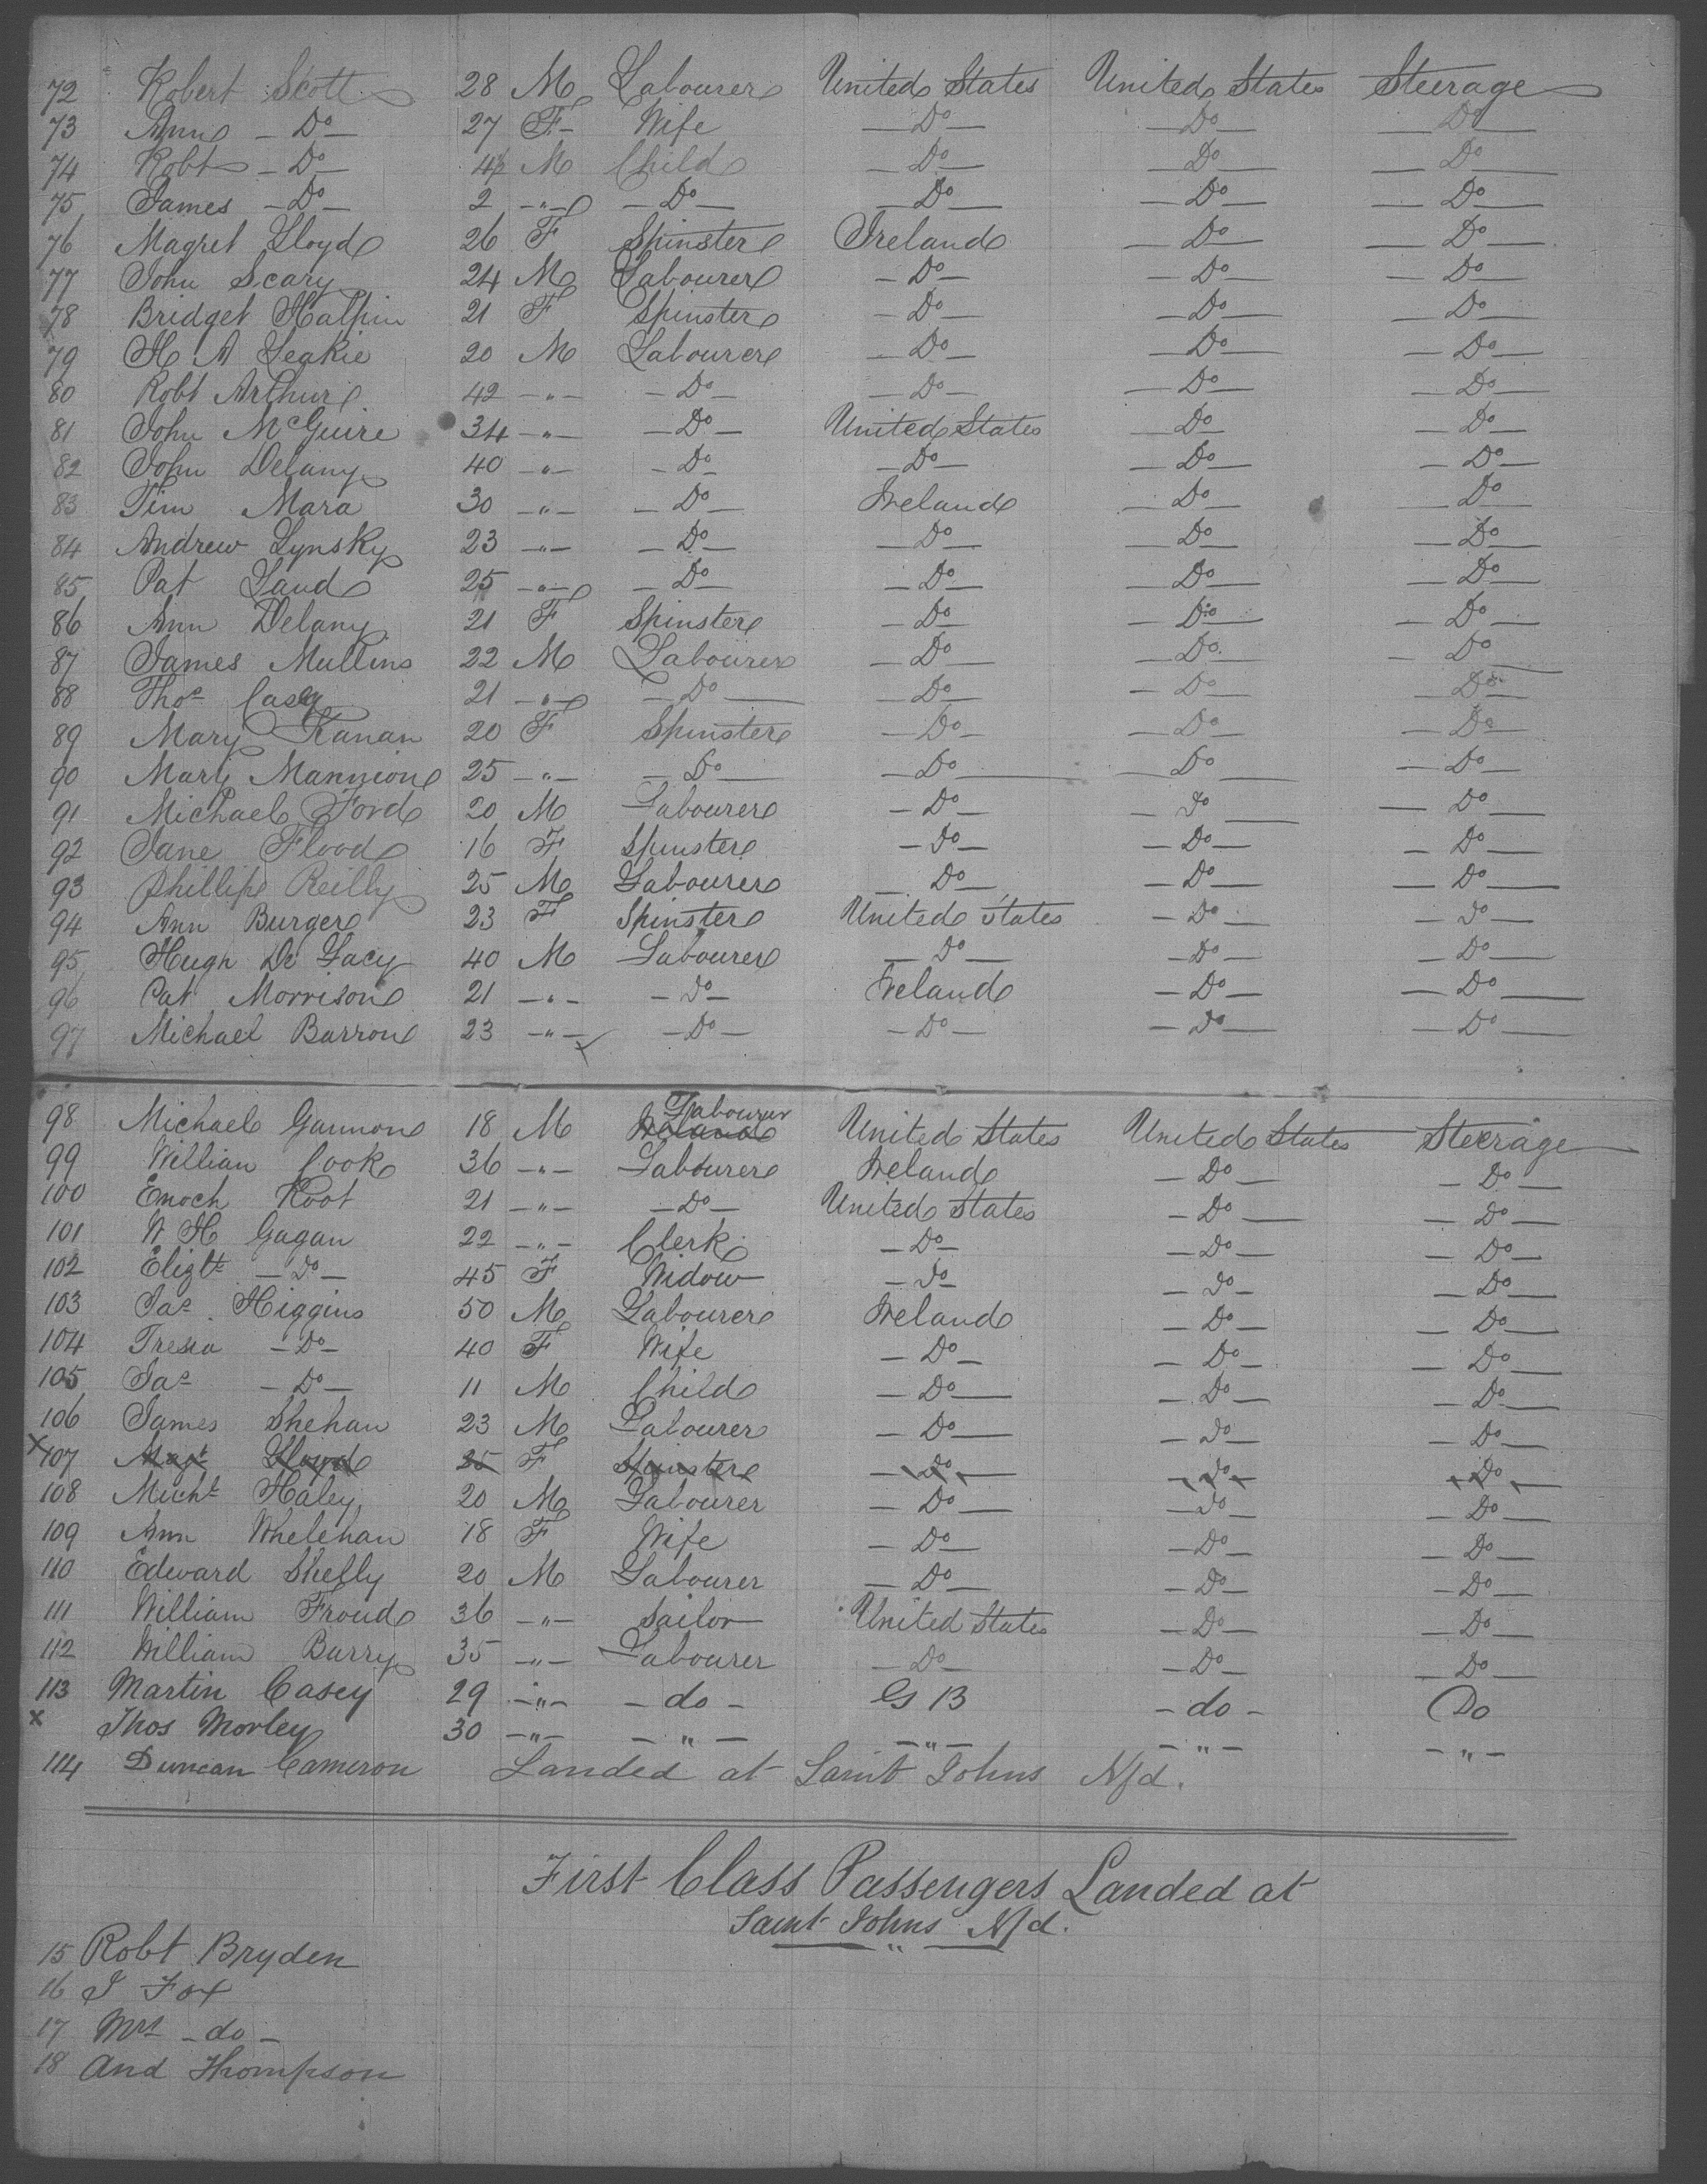 72 Robert Scott 28 M Labourer United States United States Steerage
73 Ann Do 27 F Wife Do Do Do
74 Robt Do 4 M Child Do Do Do
75 James Do 2 " Do Do Do Do
76 Magret Lloyd 26 F Spinster Ireland Do Do
77 John Scary 24 M Labourer Do Do Do
78 Bridget Halpin 21 F Spinster Do Do Do
79 H A Leakie 20 M Labourer Do Do Do
80 Robt Arthur 42 " Do Do Do Do
81 John McGuire 34 " Do United States Do Do
82 John Delany 40 " Do Do Do Do
83 Tim Mara 30 " Do Ireland Do Do
84 Andrew Lynsky 23 " Do Do Do Do
85 Pat Land 25 " Do Do Do Do
86 Ann Delany 21 F Spinster Do Do Do
87 James Mullins 22 M Labourer Do Do Do
88 Thos Casey 21 " Do Do Do Do
89 Mary Kanan 20 F Spinster Do Do Do
90 Mary Mannion 25 " Do Do Do Do
91 Michael Ford 20 M Labourer Do Do Do
92 Jane Flood 16 F Spinster Do Do Do
93 Phillip Reilly 25 M Labourer Do Do Do
94 Ann Burger 23 F Spinster United States Do Do
95 Hugh De Lacy 40 M Labourer Do Do Do
96 Pat Morrison 21 " Do Ireland Do Do
97 Michael Barron 23 " Do Do Do Do
98 Michael Gannon 18 M Labourer United States United States Steerage
99 William Cook 36 " Labourer Ireland Do Do
100 Enoch Root 21 " Do United States Do Do
101 W H Gagan 22 " Clerk Do Do Do
102 Elizbt Do 45 F Widow Do Do Do
103 Jas Higgins 50 M Labourer Ireland Do Do
104 Tresia Do 40 F Wife Do Do Do
105 Jas Do 11 M Child Do Do Do
106 James Shehan 23 M Labourer Do Do Do
x 107 Magt Lloyd 25 F Spinster Do Do Do
108 Michl Haley 20 M Labourer Do Do Do
109 Ann Whelehan 18 F Wife Do Do Do
110 Edward Shelly 20 M Labourer Do Do Do
111 William Froud 36 " Sailor United States Do Do
112 William Barry 35 " Labourer Do Do Do
113 Martin Casey 29 " do G B do Do
x Thos Morley 30 " " " " "
114 Duncan Cameron Landed at Saint Johns Nfd.
First Class Passengers Landed at
Saint Johns Nfd.
15 Robt Bryden
16 J Fox
17 Mrs do
18 And Thompson